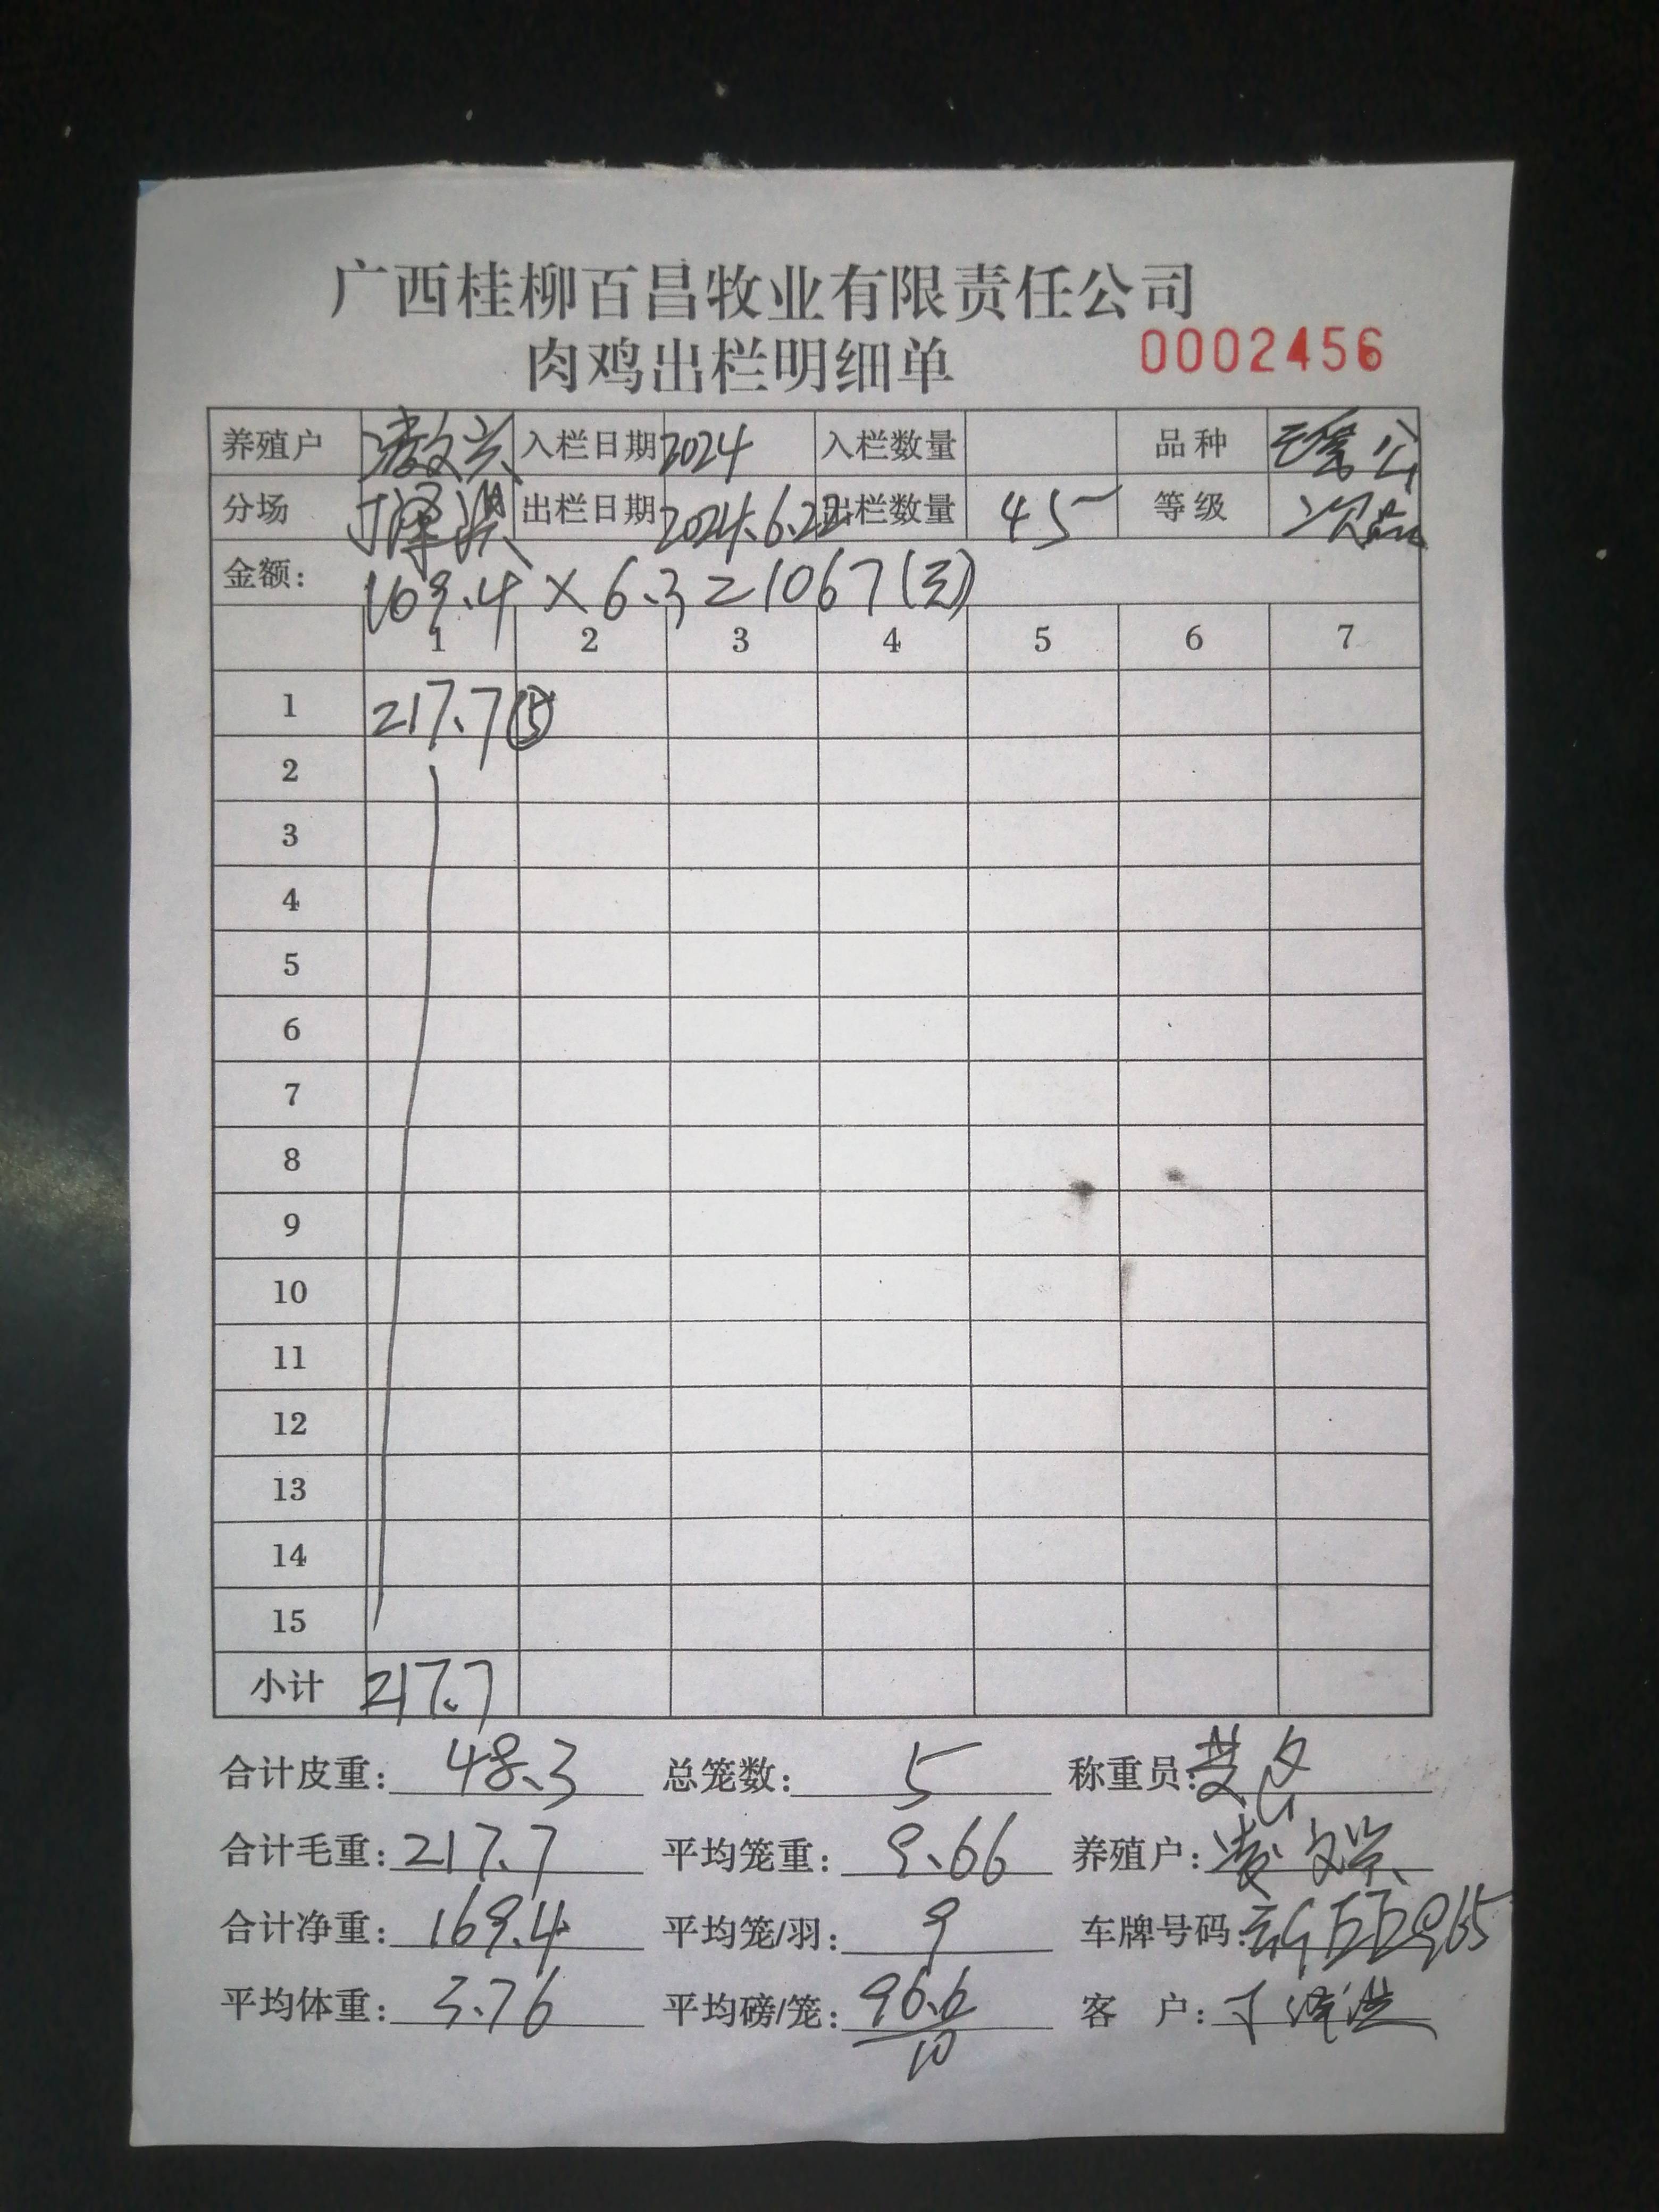 广西桂柳百昌牧业有限责任公司
肉鸡出栏明细单 0002456
养殖户 凌文兴 入栏日期 2024 入栏数量 品种 公
分场 丁泽洪 出栏日期 2024.6.22 出栏数量 45 等级 次品
金额: 169.4 × 6.3 = 1067(元)
1 2 3 4 5 6 7
1 217.7 ⑤
2
3
4
5
6
7
8
9
10
11
12
13
14
15
小计 217.7
合计皮重: 48.3 总笼数: 5 称重员:
合计毛重: 217.7 平均笼重: 9.66 养殖户: 凌文兴
合计净重: 169.4 平均笼/羽: 9 车牌号码:
平均体重: 3.76 平均磅/笼: 96.6/10 客 户: 丁泽洪